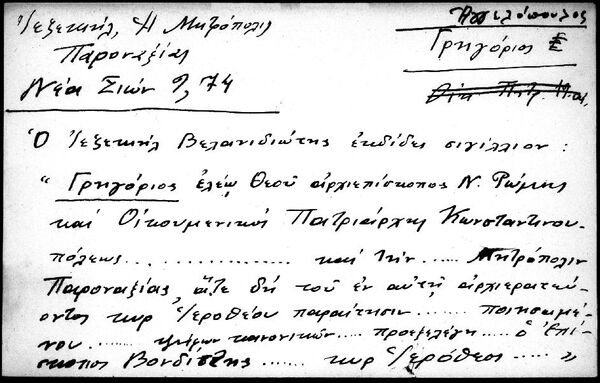 Ἰεζεκιήλ, Ἡ Μητρόπολις
Παροναξίας
Νέα Σιών 9, 74
Ἀγγελόπουλος
Γρηγόριος Ε
Οἰκ. Πατρ.
Ὁ Ἰεζεκιήλ Βελανιδιώτης ἐκδίδει σιγίλλιον :
" Γρηγόριος ἐλέῳ Θεοῦ ἀρχιεπίσκοπος Ν. Ρώμης
καί Οἰκουμενικός Πατριάρχης Κωνσταντινου-
πόλεως .......... καί τήν ...... Μητρόπολιν
Παροναξίας ἅτε δή τοῦ ἐν αὐτῇ ἀρχιερατεύ-
οντος κυρ Ἱεροθέου παραίτησιν ...... ποιησαμέ-
νου ...... ψήφων κανονικῶν ... προεξελέγη ..... ὁ ἐπί-
σκοπος Βονδίτζης ....... κυρ Ἱερόθεος ..... "